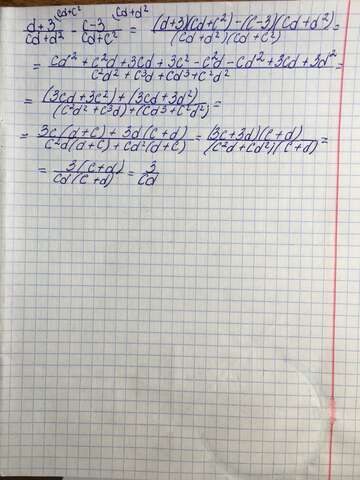 (d+3)/(cd+d²) ^(cd+c²) - (c-3)/(cd+c²) ^(cd+d²) = ((d+3)(cd+c²)-(c-3)(cd+d²))/((cd+d²)(cd+c²)) =
= (cd²+c²d+3cd+3c²-c²d-cd²+3cd+3d²)/(c²d²+c³d+cd³+c²d²) =
= ((3cd+3c²)+(3cd+3d²))/((c²d²+c³d)+(cd³+c²d²)) =
= (3c(d+c)+3d(c+d))/(c²d(d+c)+cd²(d+c)) = ((3c+3d)(c+d))/((c²d+cd²)(c+d)) =
= (3(c+d))/(cd(c+d)) = 3/(cd)